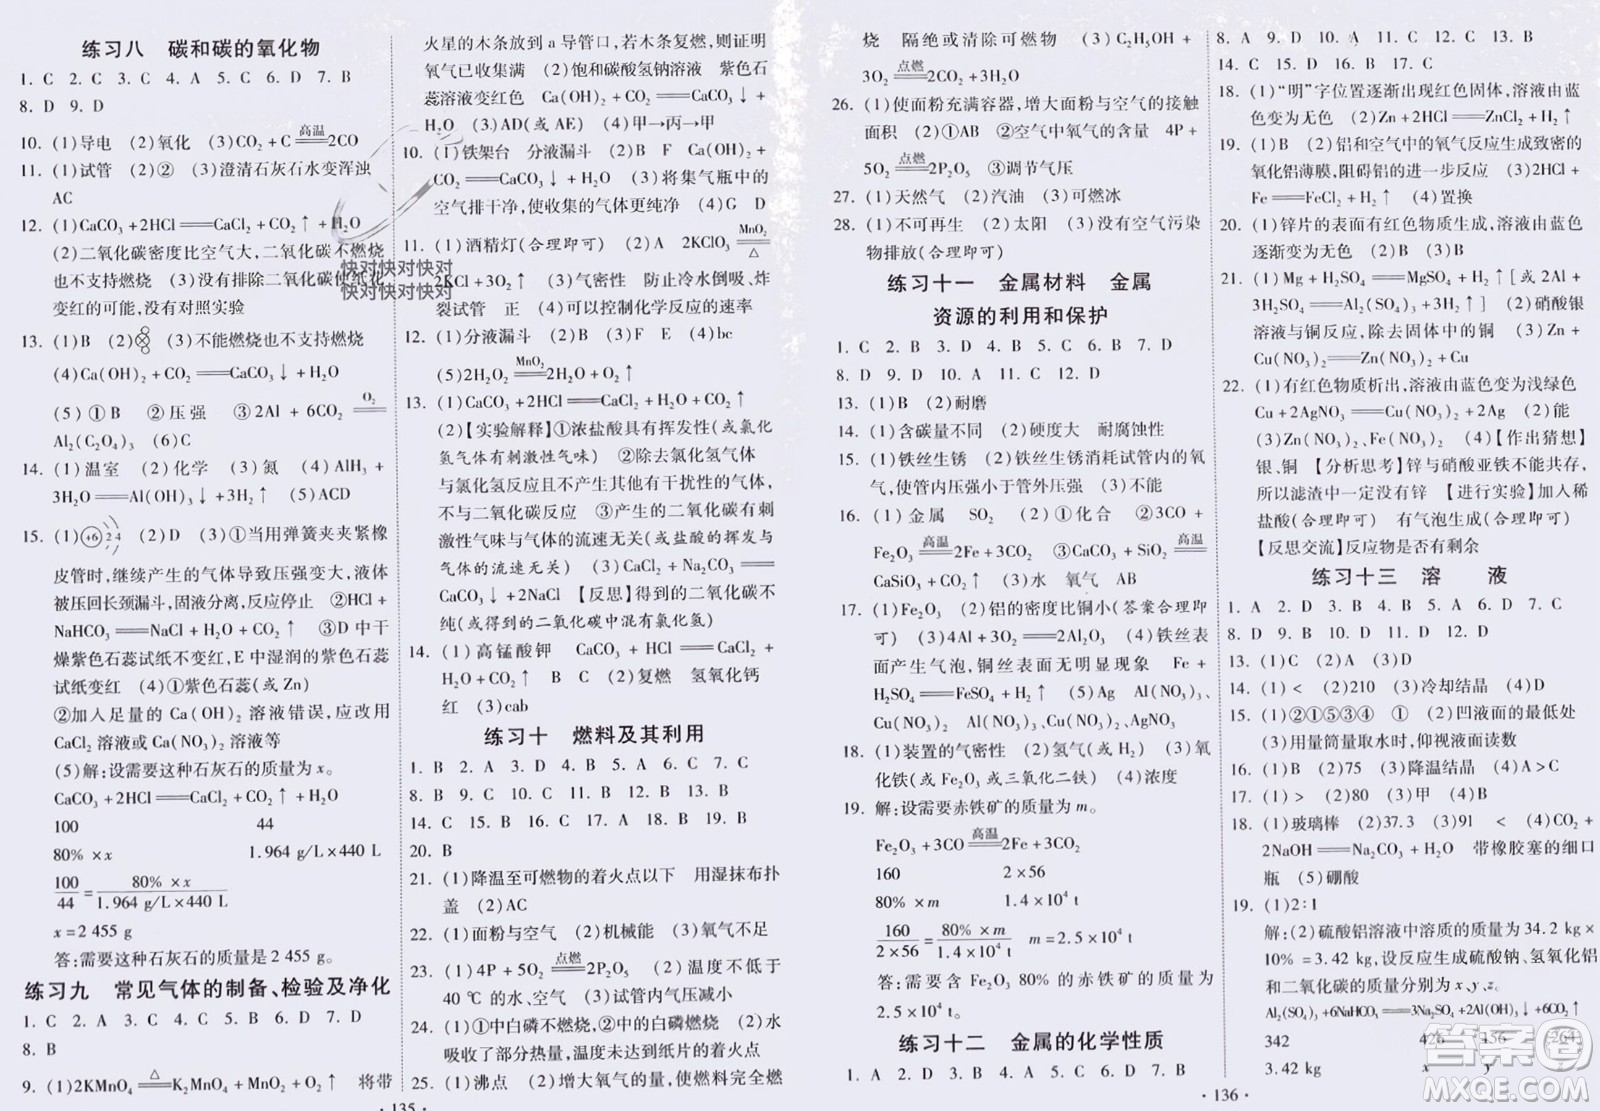 练习八 碳和碳的氧化物
1. C 2. C 3. C 4. A 5. C 6. D 7. B
8. D 9. D
10. (1)导电 (2)氧化 (3)CO₂+C══高温══2CO
11. (1)试管 (2)② (3)澄清石灰石水变浑浊
AC
12. (1)CaCO₃+2HCl═══CaCl₂+CO₂↑+H₂O
(2)二氧化碳密度比空气大,二氧化碳不燃烧
也不支持燃烧 (3)没有排除二氧化碳使钝化
变红的可能,没有对照实验
13. (1)B (2) (3)不能燃烧也不支持燃烧
(4)Ca(OH)₂+CO₂═══CaCO₃↓+H₂O
(5)①B ②压强 ③2Al+6CO₂══O₂══
Al₂(C₂O₄)₃ (6)C
14. (1)温室 (2)化学 (3)氮 (4)AlH₃+
3H₂O═══Al(OH)₃↓+3H₂↑ (5)ACD
15. (1)+6 2 4 (2)D (3)①当用弹簧夹夹紧橡
皮管时,继续产生的气体导致压强变大,液体
被压回长颈漏斗,固液分离,反应停止 ②HCl+
NaHCO₃═══NaCl+H₂O+CO₂↑ ③D中干
燥紫色石蕊试纸不变红,E中湿润的紫色石蕊
试纸变红 (4)①紫色石蕊(或Zn)
②加入足量的Ca(OH)₂溶液错误,应改用
CaCl₂溶液或Ca(NO₃)₂溶液等
(5)解:设需要这种石灰石的质量为x。
CaCO₃+2HCl═══CaCl₂+CO₂↑+H₂O
100 44
80%×x 1.964 g/L×440 L
100/44=80%×x/1.964 g/L×440 L
x=2 455 g
答:需要这种石灰石的质量是2 455 g。
练习九 常见气体的制备、检验及净化
1. C 2. A 3. C 4. C 5. C 6. D 7. D
8. B
9. (1)2KMnO₄══△══K₂MnO₄+MnO₂+O₂↑ 将带
·135·
火星的木条放到a导管口,若木条复燃,则证明
氧气已收集满 (2)饱和碳酸氢钠溶液 紫色石
蕊溶液变红色 Ca(OH)₂+CO₂═══CaCO₃↓+
H₂O (3)AD(或AE) (4)甲→丙→甲
10. (1)铁架台 分液漏斗 (2)B F Ca(OH)₂+
CO₂═══CaCO₃↓+H₂O (3)将集气瓶中的
空气排干净,使收集的气体更纯净 (4)G D
11. (1)酒精灯(合理即可) (2)A 2KClO₃══MnO₂/△══
2KCl+3O₂↑ (3)气密性 防止冷水倒吸、炸
裂试管 正 (4)可以控制化学反应的速率
12. (1)分液漏斗 (2)B (3)F E (4)bc
(5)2H₂O₂══MnO₂══2H₂O+O₂↑
13. (1)CaCO₃+2HCl═══CaCl₂+H₂O+CO₂↑
(2)【实验解释】①浓盐酸具有挥发性(或氯化
氢气体有刺激性气味) ②除去氯化氢气体
与氯化氢反应且不产生其他有干扰性的气体,
不与二氧化碳反应 ③产生的二氧化碳有刺
激性气味与气体的流速无关(或盐酸的挥发与
气体的流速无关) (3)CaCl₂+Na₂CO₃═══
CaCO₃↓+2NaCl 【反思】得到的二氧化碳不
纯(或得到的二氧化碳中混有氯化氢)
14. (1)高锰酸钾 CaCO₃+2HCl═══CaCl₂+
H₂O+CO₂↑ (2)复燃 氢氧化钙
红 (3)cab
练习十 燃料及其利用
1. B 2. A 3. D 4. B 5. A 6. C 7. C
8. B 9. B 10. C 11. B 12. B 13. B
14. C 15. B 16. C 17. A 18. B 19. B
20. B
21. (1)降温至可燃物的着火点以下 用湿抹布扑
盖 (2)AC
22. (1)面粉与空气 (2)机械能 (3)氧气不足
23. (1)4P+5O₂══点燃══2P₂O₅ (2)温度不于
40 ℃的水、空气 (3)试管内气压减小
24. (1)①中白磷不燃烧,②中的白磷燃烧 (2)水
吸收了部分热量,温度未达到纸片的着火点
25. (1)沸点 (2)增大氧气的量,使燃料完全燃
烧 隔绝或清除可燃物 (3)C₂H₅OH+
3O₂══点燃══2CO₂+3H₂O
26. (1)使面粉充满容器,增大面粉与空气的接触
面积 (2)①AB ②空气中氧气的含量 4P+
5O₂══点燃══2P₂O₅ ③调节气压
27. (1)天然气 (2)汽油 (3)可燃冰
28. (1)不可再生 (2)太阳 (3)没有空气污染
物排放(合理即可)
练习十一 金属材料 金属
资源的利用和保护
1. C 2. B 3. D 4. B 5. C 6. B 7. D
8. D 9. D 10. A 11. C 12. D
13. (1)B (2)耐磨
14. (1)含碳量不同 (2)硬度大 耐腐蚀性
15. (1)铁丝生锈 (2)铁丝生锈消耗试管内的氧
气,使管内压强小于管外压强 (3)不能
16. (1)金属 SO₂ (2)①化合 ②3CO+
Fe₂O₃══高温══2Fe+3CO₂ ③CaCO₃+SiO₂══高温══
CaSiO₃+CO₂↑ (3)水 氧气 AB
17. (1)Fe₂O₃ (2)铝的密度比铜小(答案合理即
可) (3)4Al+3O₂═══2Al₂O₃ (4)铁丝表
面产生气泡,铜丝表面无明显现象 Fe+
H₂SO₄═══FeSO₄+H₂↑ (5)Ag Al(NO₃)₃、
Cu(NO₃)₂ Al(NO₃)₃、Cu(NO₃)₂、AgNO₃
18. (1)装置的气密性 (2)氢气(或H₂) (3)氧
化铁(或Fe₂O₃或三氧化二铁) (4)浓度
19. 解:设需要赤铁矿的质量为m。
Fe₂O₃+3CO══高温══2Fe+3CO₂
160 2×56
80%×m 1.4×10⁴ t
160/2×56=80%×m/1.4×10⁴ t m=2.5×10⁴ t
答:需要含Fe₂O₃ 80%的赤铁矿的质量为
2.5×10⁴ t。
练习十二 金属的化学性质
1. A 2. D 3. A 4. D 5. D 6. D 7. B
·136·
8. A 9. D 10. D 11. B 12. B 13. C
14. C 15. D 16. B 17. C
18. (1)“明”字位置逐渐出现红色固体,溶液由蓝
色变为无色 (2)Zn+2HCl═══ZnCl₂+H₂↑
19. (1)B (2)铝和空气中的氧气反应生成致密的
氧化铝薄膜,阻碍铝的进一步反应 (3)2HCl+
Fe═══FeCl₂+H₂↑ (4)置换
20. (1)锌片的表面有红色物质生成,溶液由蓝色
逐渐变为无色 (2)B (3)B
21. (1)Mg+H₂SO₄═══MgSO₄+H₂↑[或2Al+
3H₂SO₄═══Al₂(SO₄)₃+3H₂↑] (2)硝酸银
溶液与铜反应,除去固体中的铜 (3)Zn+
Cu(NO₃)₂═══Zn(NO₃)₂+Cu
22. (1)有红色物质析出,溶液由蓝色变为浅绿色
Cu+2AgNO₃═══Cu(NO₃)₂+2Ag (2)能
(3)Zn(NO₃)₂、Fe(NO₃)₂ (4)【作出猜想】
银、铜 【分析思考】锌与硝酸亚铁不能共存,
所以滤渣中一定没有锌 【进行实验】加入稀
盐酸(合理即可) 有气泡生成(合理即可)
【反思交流】反应物是否有剩余
练习十三 溶 液
1. A 2. D 3. C 4. D 5. D 6. D 7. C
8. D 9. B 10. D 11. D 12. D
13. (1)C (2)A (3)D
14. (1)< (2)210 (3)冷却结晶 (4)D
15. (1)②①⑤③④ ① (2)凹液面的最低处
(3)用量筒量取水时,仰视液面读数
16. (1)B (2)75 (3)降温结晶 (4)A>C
17. (1)> (2)80 (3)甲 (4)B
18. (1)玻璃棒 (2)37.3 (3)91 < (4)CO₂+
2NaOH═══Na₂CO₃+H₂O 带橡胶塞的细口
瓶 (5)硼酸
19. (1)2∶1
解:(2)硫酸铝溶液中溶质的质量为34.2 kg×
10%=3.42 kg,设反应生成硫酸钠、氢氧化铝
和二氧化碳的质量分别为x、y、z。
Al₂(SO₄)₃+6NaHCO₃═══3Na₂SO₄+2Al(OH)₃↓+6CO₂↑
342 426 156 264
3.42 kg x y
快对快对快对
快对快对快对
答案圈
MXQE.COM